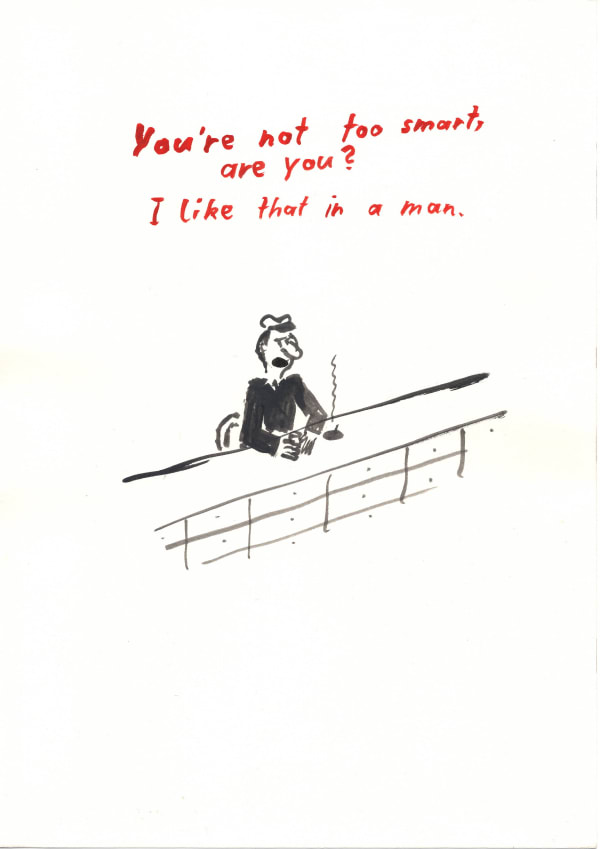 You're not too smart,
are you?
I like that in a man.